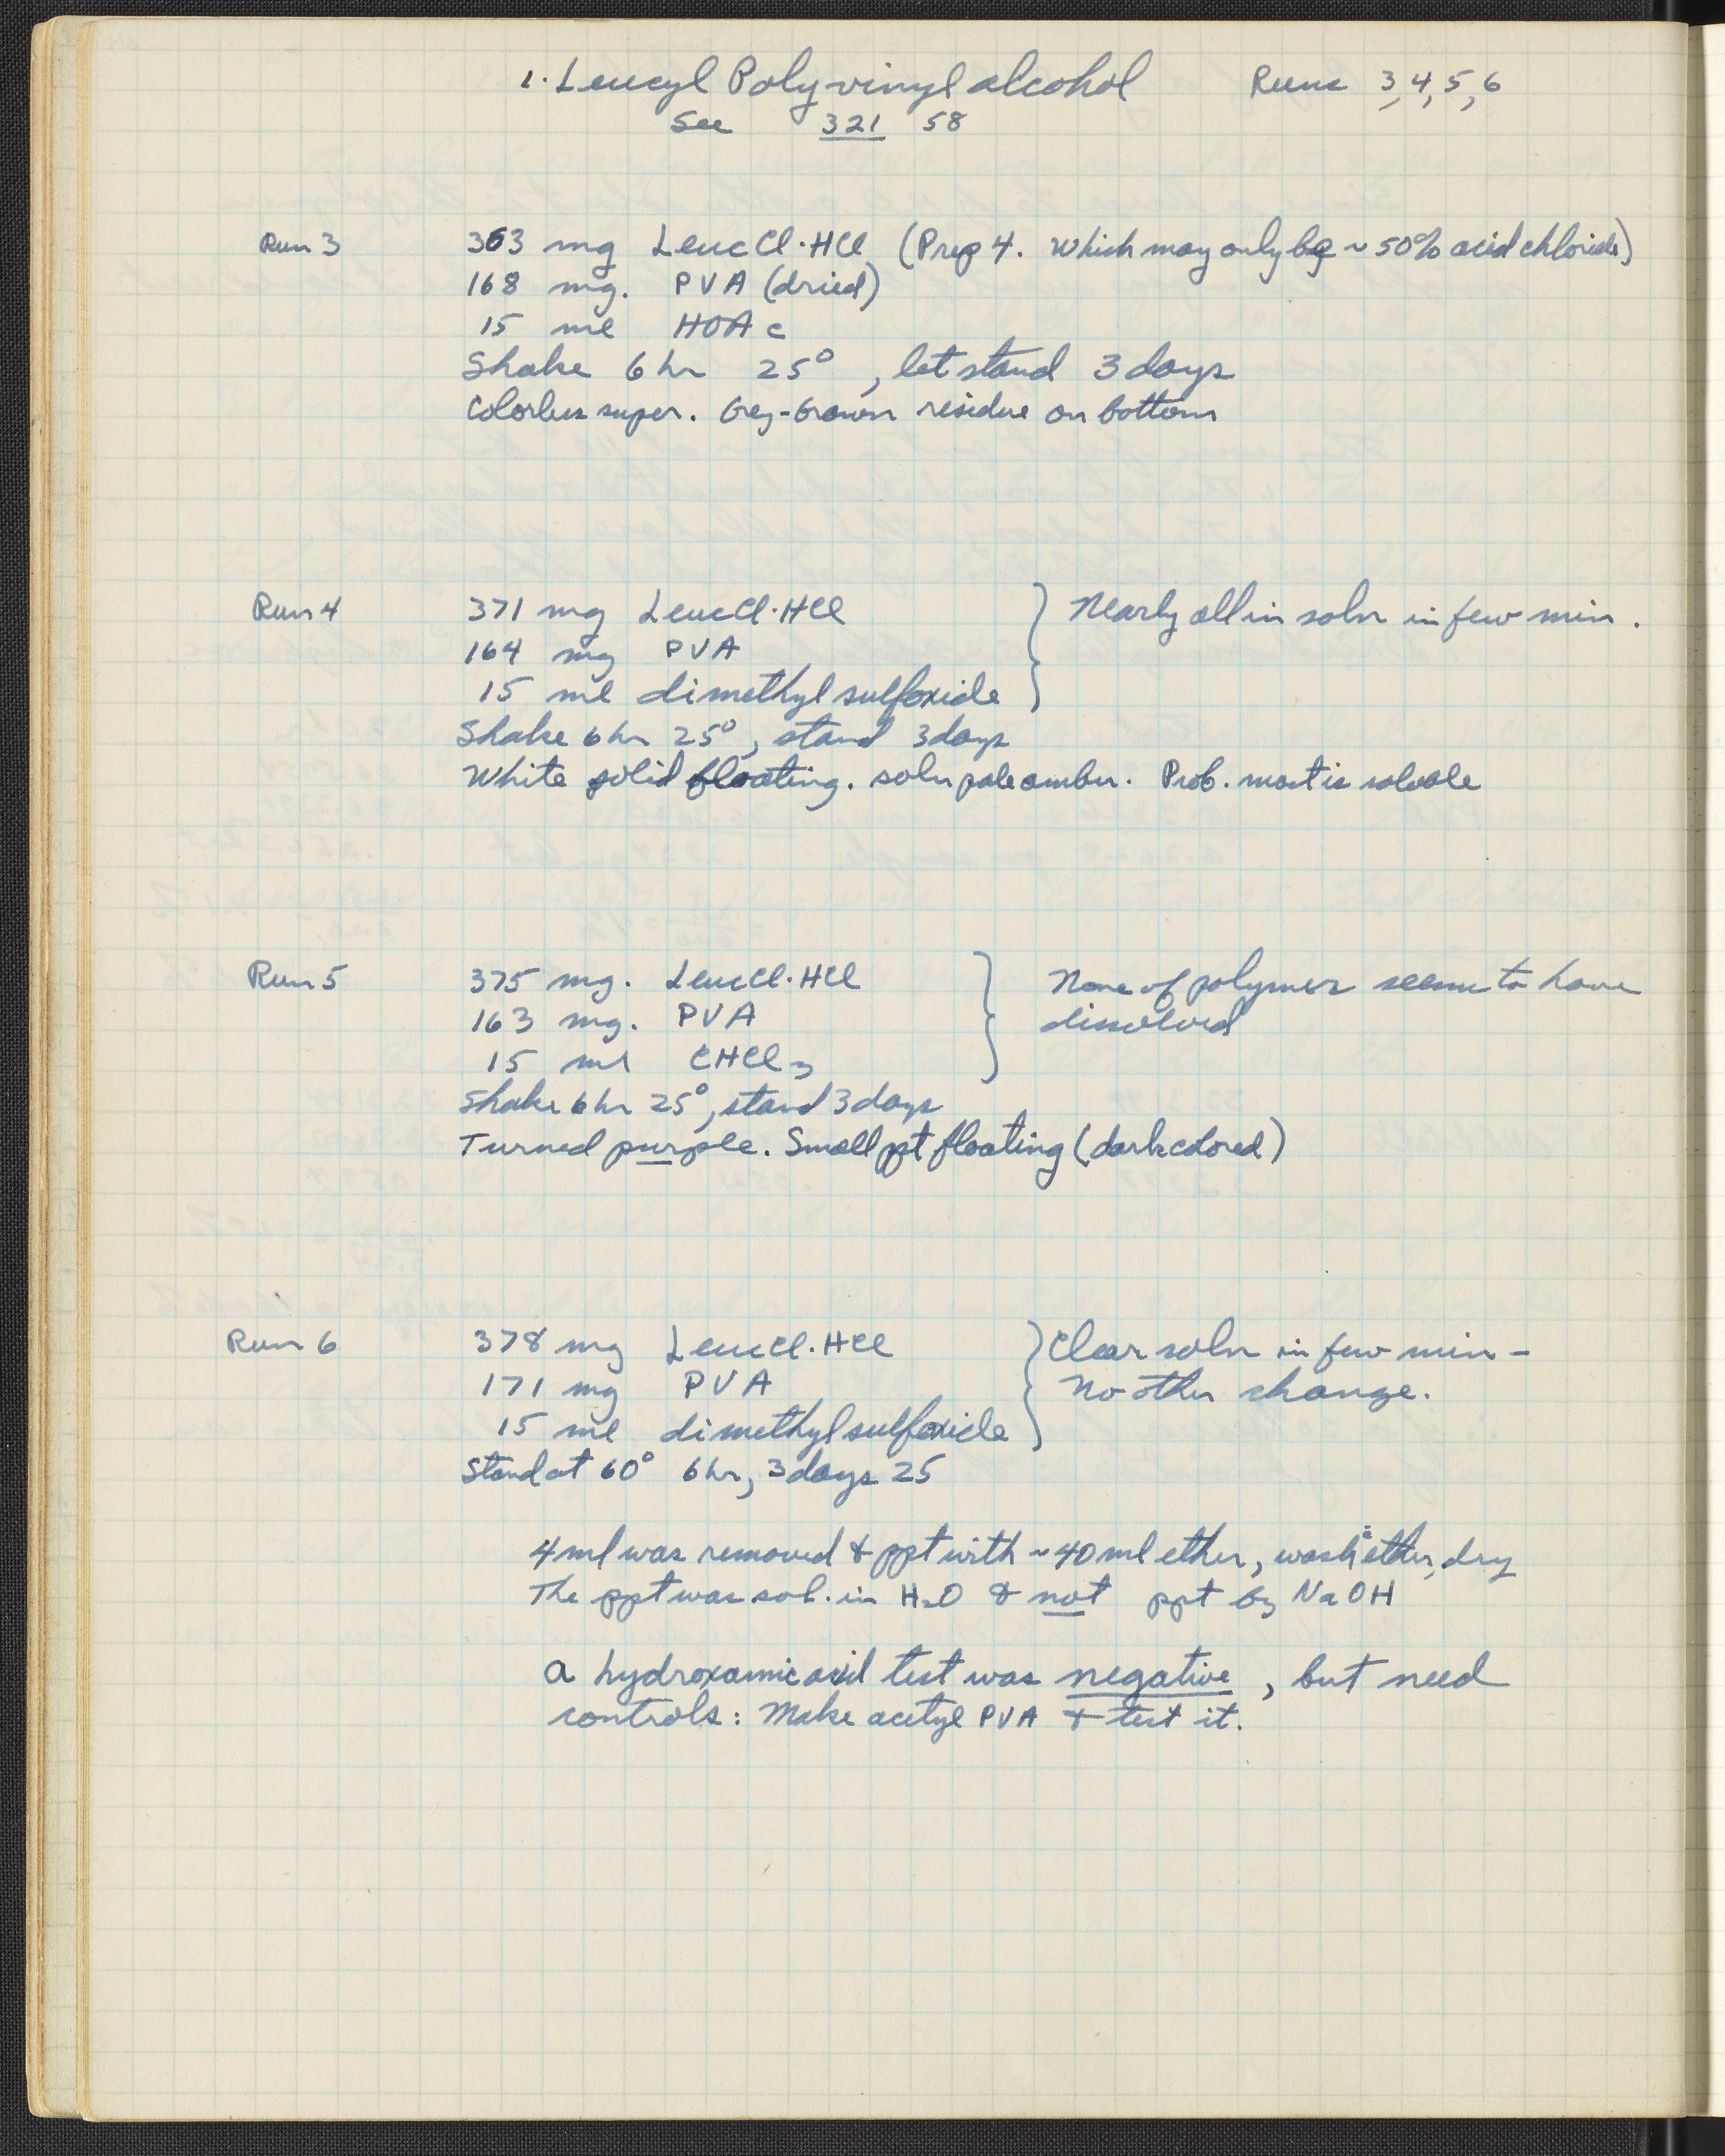 1. Leucyl Polyvinyl alcohol Runs 3,4,5,6
See 321 58
Run 3 363 mg LeucCl·HCl (Prep 4. Which may only be ~50% acid chloride)
168 mg. PVA (dried)
15 ml HOAc
Shake 6 hr 25°, let stand 3 days
Colorless super. Grey-brown residue on bottom
Run 4 371 mg LeucCl·HCl } Nearly all in soln in few min.
164 mg PVA
15 ml dimethyl sulfoxide
Shake 6 hr 25°, stand 3 days
White solid floating. soln pale amber. Prob. most is soluble
Run 5 375 mg. LeucCl·HCl } None of polymer seems to have
163 mg. PVA dissolved
15 ml CHCl3
Shake 6 hr 25°, stand 3 days
Turned purple. Small ppt floating (dark colored)
Run 6 378 mg LeucCl·HCl } Clear soln in few min -
171 mg PVA No other change.
15 ml dimethyl sulfoxide
Stand at 60° 6 hr, 3 days 25
4 ml was removed & ppt with ~40 ml ether, wash ether, dry
The ppt was sol. in H2O & not ppt by NaOH
A hydroxamic acid test was negative, but need
controls: Make acetyl PVA & test it.